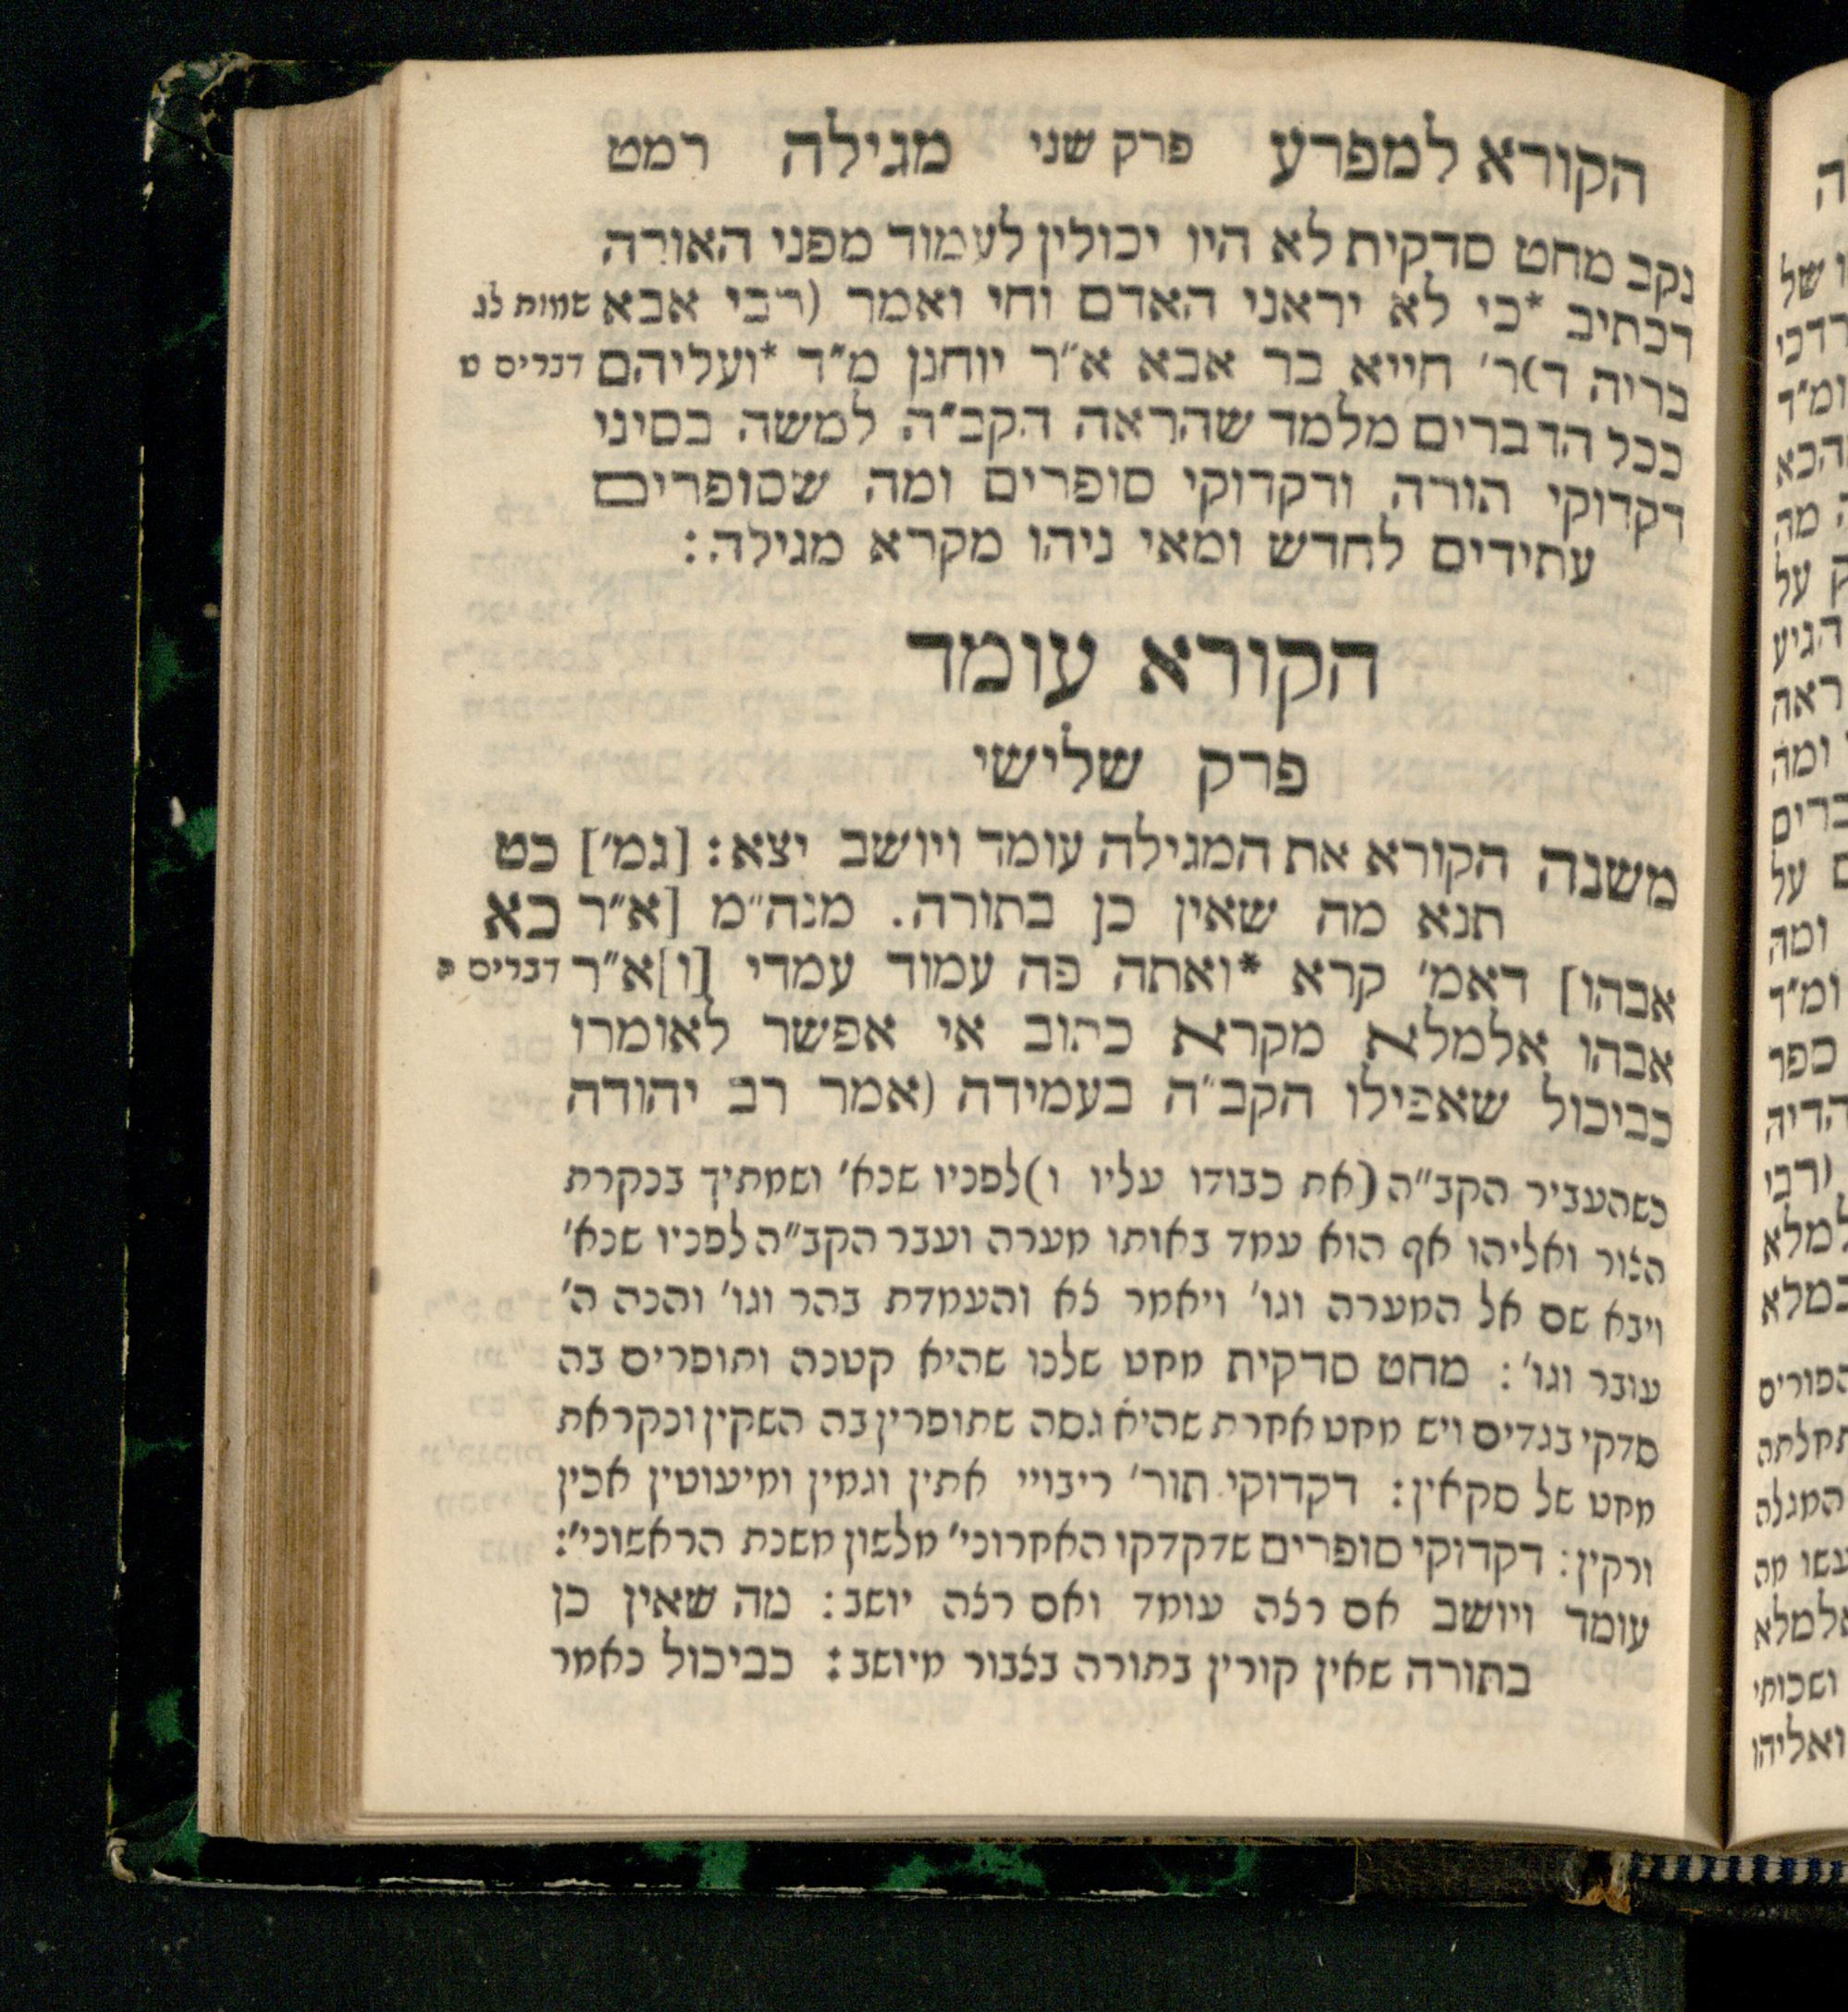 הקורא למפרע פרק שני מגילה רמט
נקב מחט סדקית לא היו יכולין לעמוד מפני האורה
דכתיב *כי לא יראני האדם וחי ואמר (רבי אבא שמות לג
בריה ד)ר׳ חייא בר אבא א״ר יוחנן מ״ד *ועליהם דברים ט
ככל הדברים מלמד שהראה הקב״ה למשה בסיני
דקדוקי תורה ודקדוקי סופרים ומה שסופרים
עתידים לחדש ומאי ניהו מקרא מגילה:
הקורא עומד
פרק שלישי
משנה הקורא את המגילה עומד ויושב יצא: [גמ׳] כט
תנא מה שאין כן בתורה. מנה״מ [א״ר כא
אבהו] דאמ׳ קרא *ואתה פה עמוד עמדי [ו]א״ר דברים ה
אבהו אלמלא מקרא כתוב אי אפשר לאומרו
כביכול שאפילו הקב״ה בעמידה (אמר רב יהודה
כשהעביר הקב״ה (את כבודו עליו ו)לפניו שנא׳ ושמתיך בנקרת
הצור ואליהו אף הוא עמד באותו מערה ועבר הקב״ה לפניו שנא׳
ויבא שם אל המערה וגו׳ ויאמר צא והעמדת בהר וגו׳ והנה ה׳
עובר וגו׳: מחט סדקית מחט שלנו שהיא קטנה ותופרים בה
סדקי בגדים ויש מחט אחרת שהיא גסה שתופרין בה השקין ונקראת
מחט של סקאין: דקדוקי תור׳ ריבויי אתין וגמין ומיעוטין אכין
ורקין: דקדוקי סופרים שדקדקו האחרוני׳ מלשון משנת הראשוני׳:
עומד ויושב אם רצה עומד ואם רצה יושב: מה שאין כן
בתורה שאין קורין בתורה בצבור מיושב: כביכול נאמר